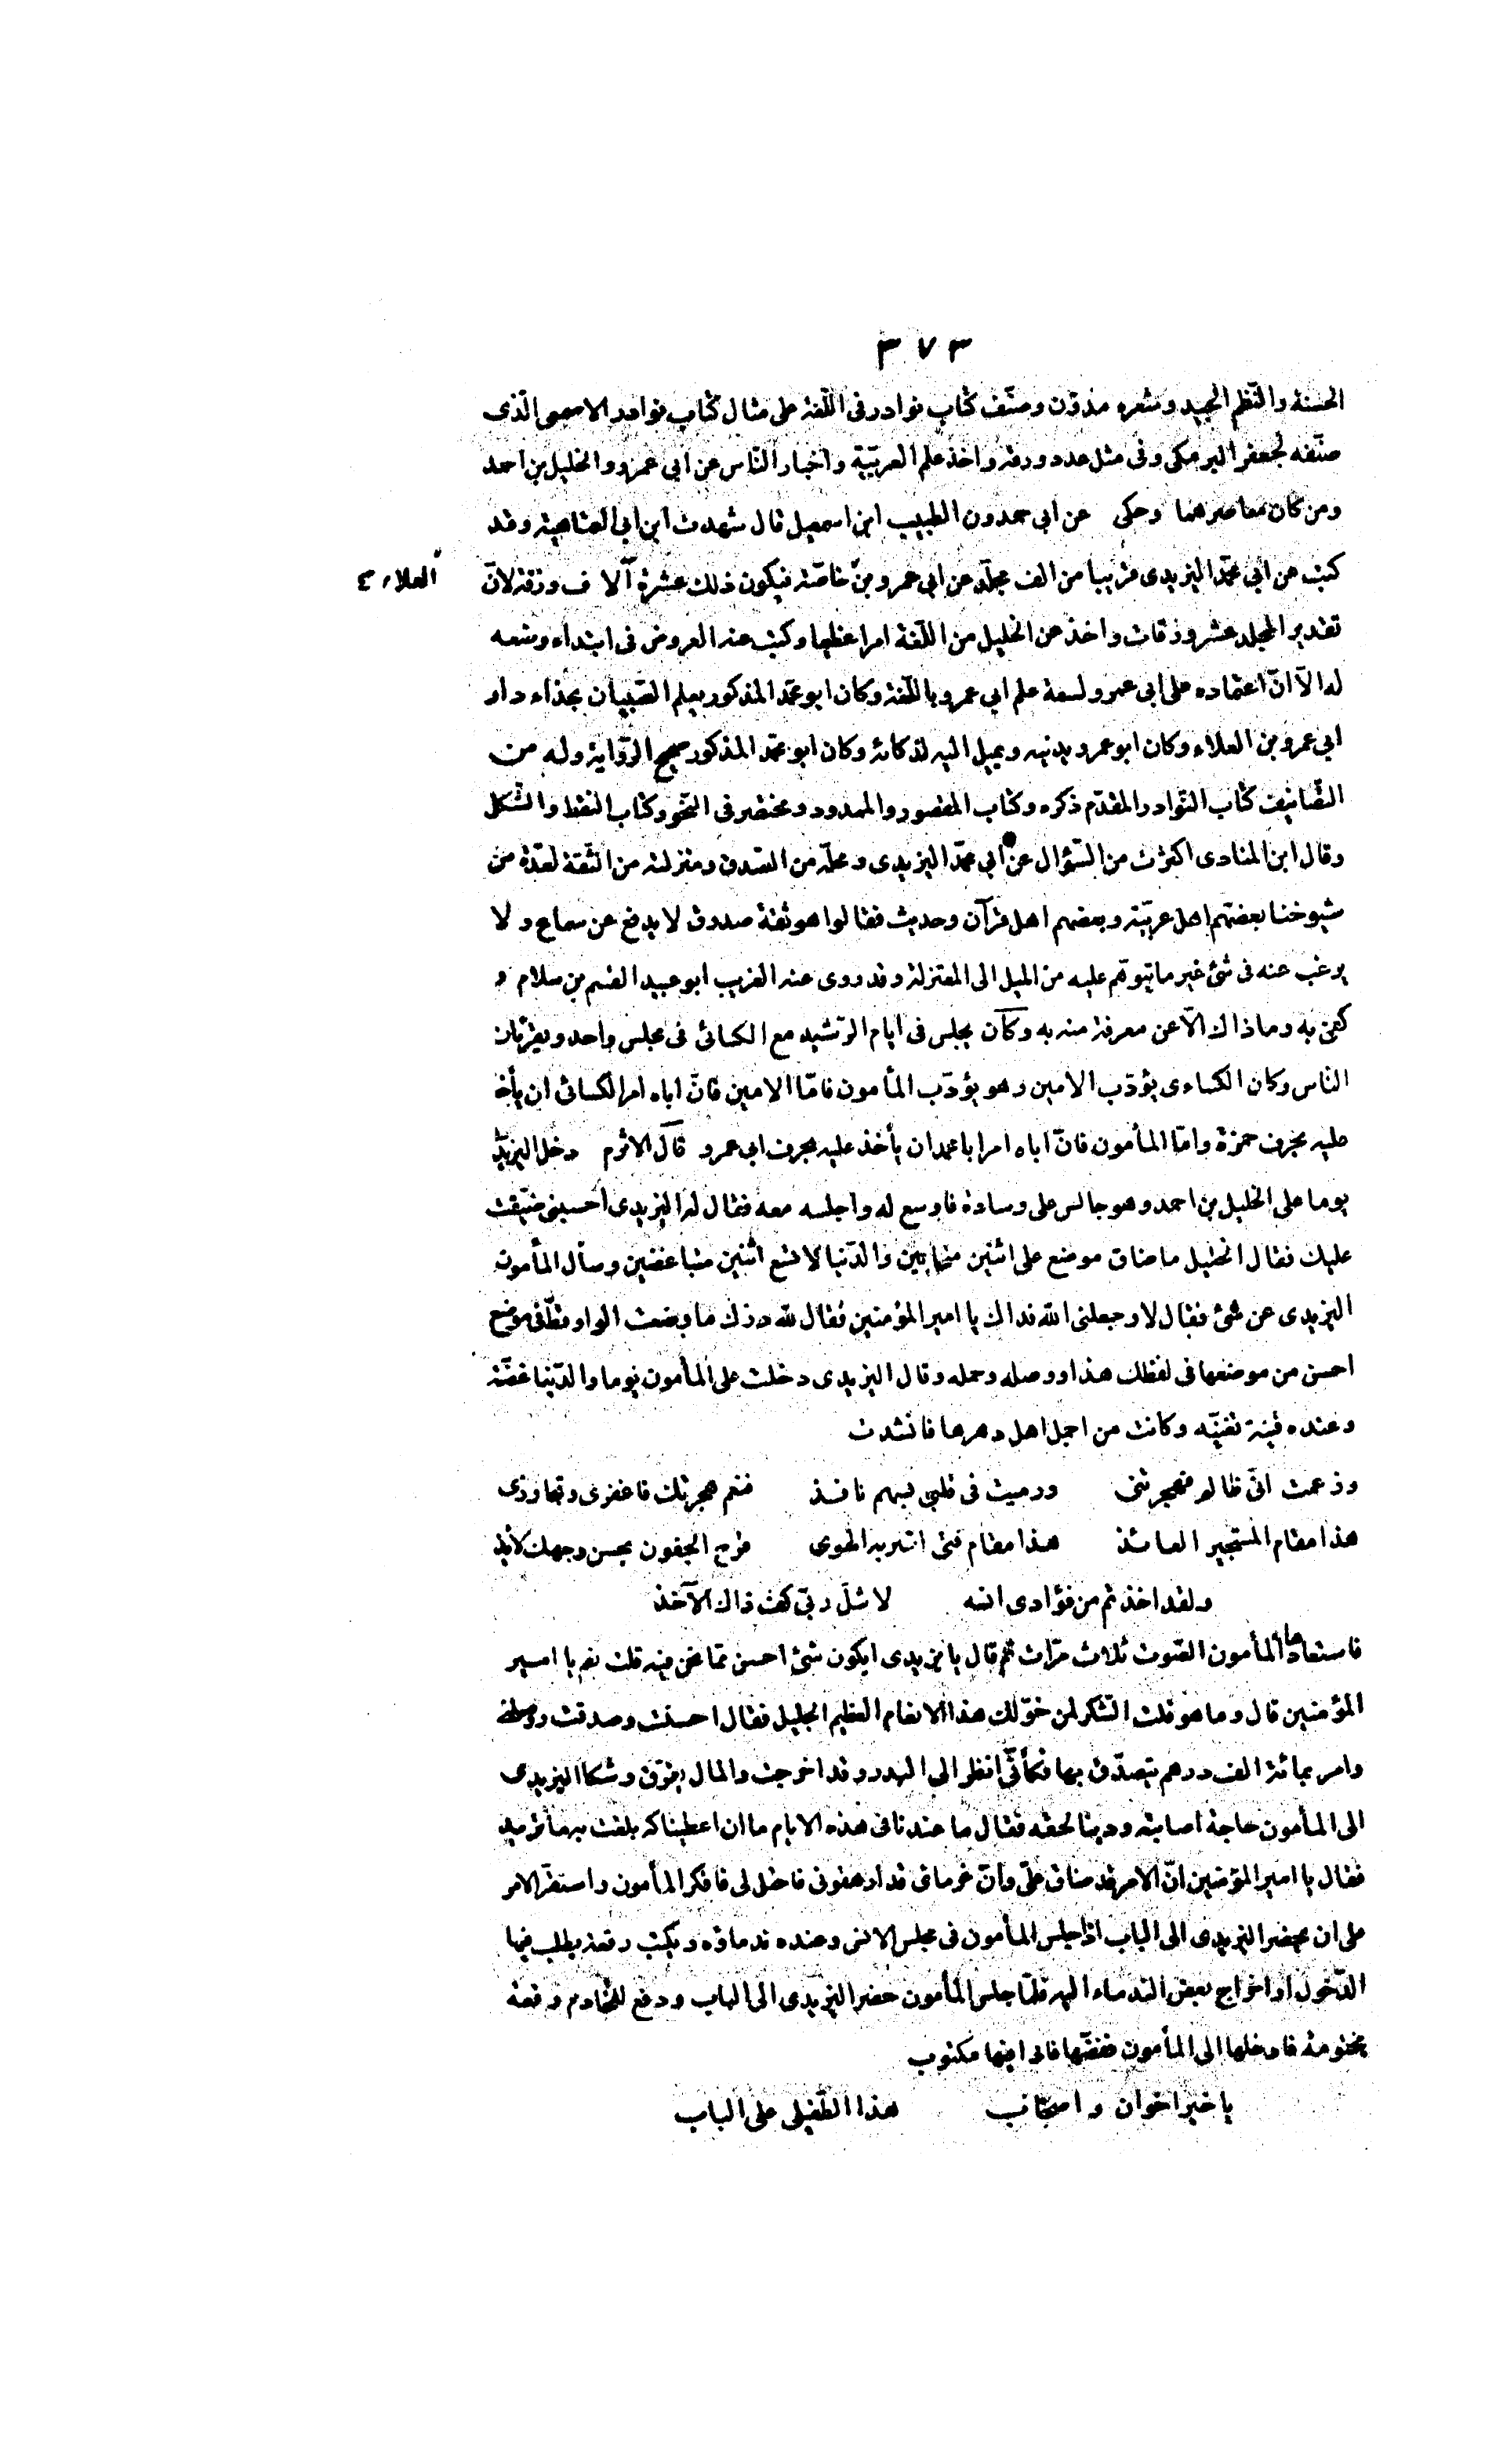 ٣٧٣
الحسنة والنّظم الجيد وشعره مدوّن وصنّف كتاب نوادر فى اللّغة على مثال كتاب نوادر الاصمعى الّذى
صنّفه لجعفر البرمكى وفى مثل عدد ورقه واخذ علم العربيّة واخبار النّاس عن ابى عمرو والخليل بن احمد
ومن كان معاصرهما وحكى عن ابى حمدون الطبيب ابن اسمعيل قال شهدت ابن ابى العتاهية وقد
كتب عن ابى محمّد اليزيدى قريبا من الف مجلّد عن ابى عمرو بن خاصّة فيكون ذلك عشرة آلاف ورقة لانّ
العلاء
تقدير المجلد عشر ورقات واخذ عن الخليل من اللّغة امرا عظيما وكتب عنه العروض فى ابتداء وضعه
له الّا انّ اعتماده على ابى عمرو لسعة علم ابى عمرو باللّغة وكان ابو محمّد المذكور يعلم الصّبيان بحذاء دار
ابى عمرو بن العلاء وكان ابو عمرو يدنيه ويميل اليه لذكائه وكان ابو محمّد المذكور صحيح الرّواية وله من
التّصانيف كتاب النّوادر المقدّم ذكره وكتاب المقصور والممدود ومختصر فى النّحو وكتاب النقط والشّكل
وقال ابن المنادى اكثرت من السّؤال عن ابى محمّد اليزيدى ومحلّه من الصّدق ومنزلته من الثّقة لعدّة من
شيوخنا بعضهم اهل عربيّة وبعضهم اهل قرآن وحديث فقالوا هو ثقة صدوق لا يدفع عن سماع ولا
يرغب عنه فى شئ غير ما يتوهّم عليه من الميل الى المعتزلة وقد روى عنه الغريب ابو عبيد القسم بن سلام و
كفى به وما ذاك الّا عن معرفة منه به وكان يجلس فى ايام الرّشيد مع الكسائى فى مجلس واحد ويقرئان
النّاس وكان الكساءى يؤدّب الامين وهو يؤدّب المأمون فامّا الامين فانّ اباه امر الكسائى ان يأخذ
عليه بحرف حمزة وامّا المأمون فانّ اباه امر ابا محمد ان يأخذ عليه بحرف ابى عمرو قال الاثرم دخل اليزيدى
يوما على الخليل بن احمد وهو جالس على وسادة فاوسع له واجلسه معه فقال له اليزيدى احسبنى ضيّقت
عليك فقال الخليل ما ضاق موضع على اثنين متحابين والدّنيا لا تسع اثنين متباغضين وسأل المأمون
اليزيدى عن شئ فقال لا وجعلنى الله فداك يا امير المؤمنين فقال لله درّك ما وضعت الواو قطّ فى موضع
احسن من موضعها فى لفظك هذا ووصله وحمله وقال اليزيدى دخلت على المأمون يوما والدّنيا غضّة
وعنده قينة تغنّيه وكانت من اجمل اهل دهرها فانشدت
وزعمت انّى ظالم فهجرتنى ورميت فى قلبى بسهم نافذ فنعم هجرتك فاغفرى وتجاوزى
هذا مقام المستجير العائذ هذا مقام فتى اضر به الهوى قرح الجفون بحسن وجهك لائذ
ولقد اخذتم من فؤادى انسه لا شلّ ربّى كفّ ذاك الآخذ
فاستعادها المأمون الصّوت ثلاث مرّات ثم قال يا يزيدى ايكون شئ احسن ممّا نحن فيه قلت نعم يا امير
المؤمنين قال وما هو قلت الشّكر لمن خوّلك هذا الانعام العظيم الجليل فقال احسنت وصدقت ووصلنى
وامر بمائة الف درهم يتصدّق بها فكأنّى انظر الى البدر وقد اخرجت والمال يفرّق وشكا اليزيدى
الى المأمون حاجة اصابته ودينا لحقه فقال ما عندنا فى هذه الايام ما ان اعطيناكه بلغت به ما تريد
فقال يا امير المؤمنين انّ الامر قد ضاق علىّ وانّ غرمائى قد ارهقونى فاحتل لى فافكر المأمون واستقرّ الامر
على ان يحضر اليزيدى الى الباب اذا جلس المأمون فى مجلس الانس وعنده ندماؤه ويكتب رقعة يطلب فيها
الدّخول او اخراج بعض النّدماء اليه فلمّا جلس المأمون حضر اليزيدى الى الباب ودفع للخادم رقعة
مختومة فادخلها الى المأمون ففضّها فاذا فيها مكتوب
يا خير اخوان واصحاب هذا الطّفيلى على الباب